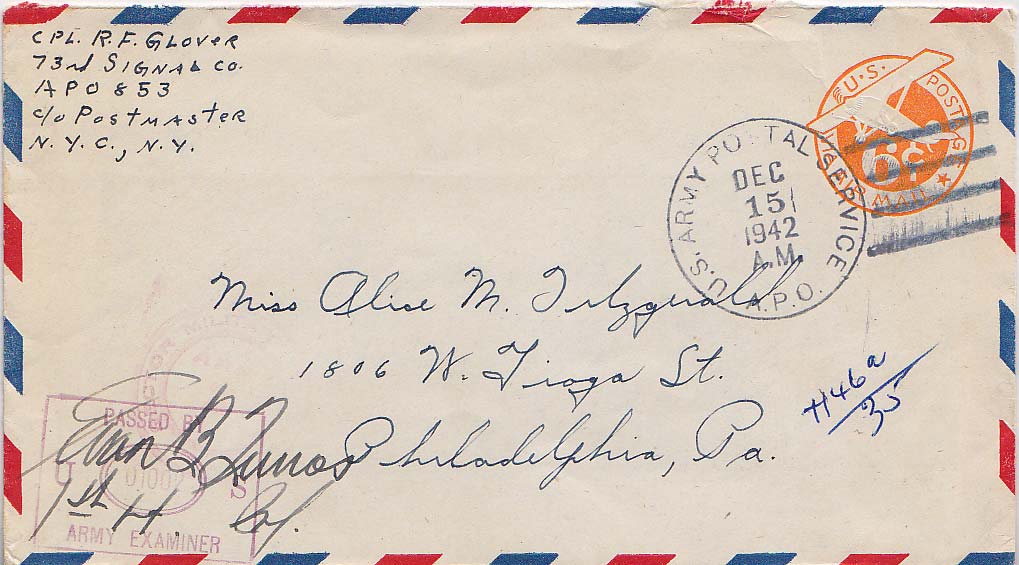 CPL. R.F. GLOVER
73rd SIGNAL CO.
APO 853
c/o POSTMASTER
N.Y.C., N.Y.
U.S. POSTAGE
6¢
AIR MAIL
U.S. ARMY POSTAL SERVICE
DEC
15
1942
A.M.
A.P.O.
Miss Alice M. Fitzgerald
1806 W. Tioga St.
Philadelphia, Pa.
H46a
35
PASSED BY
U S
ARMY EXAMINER